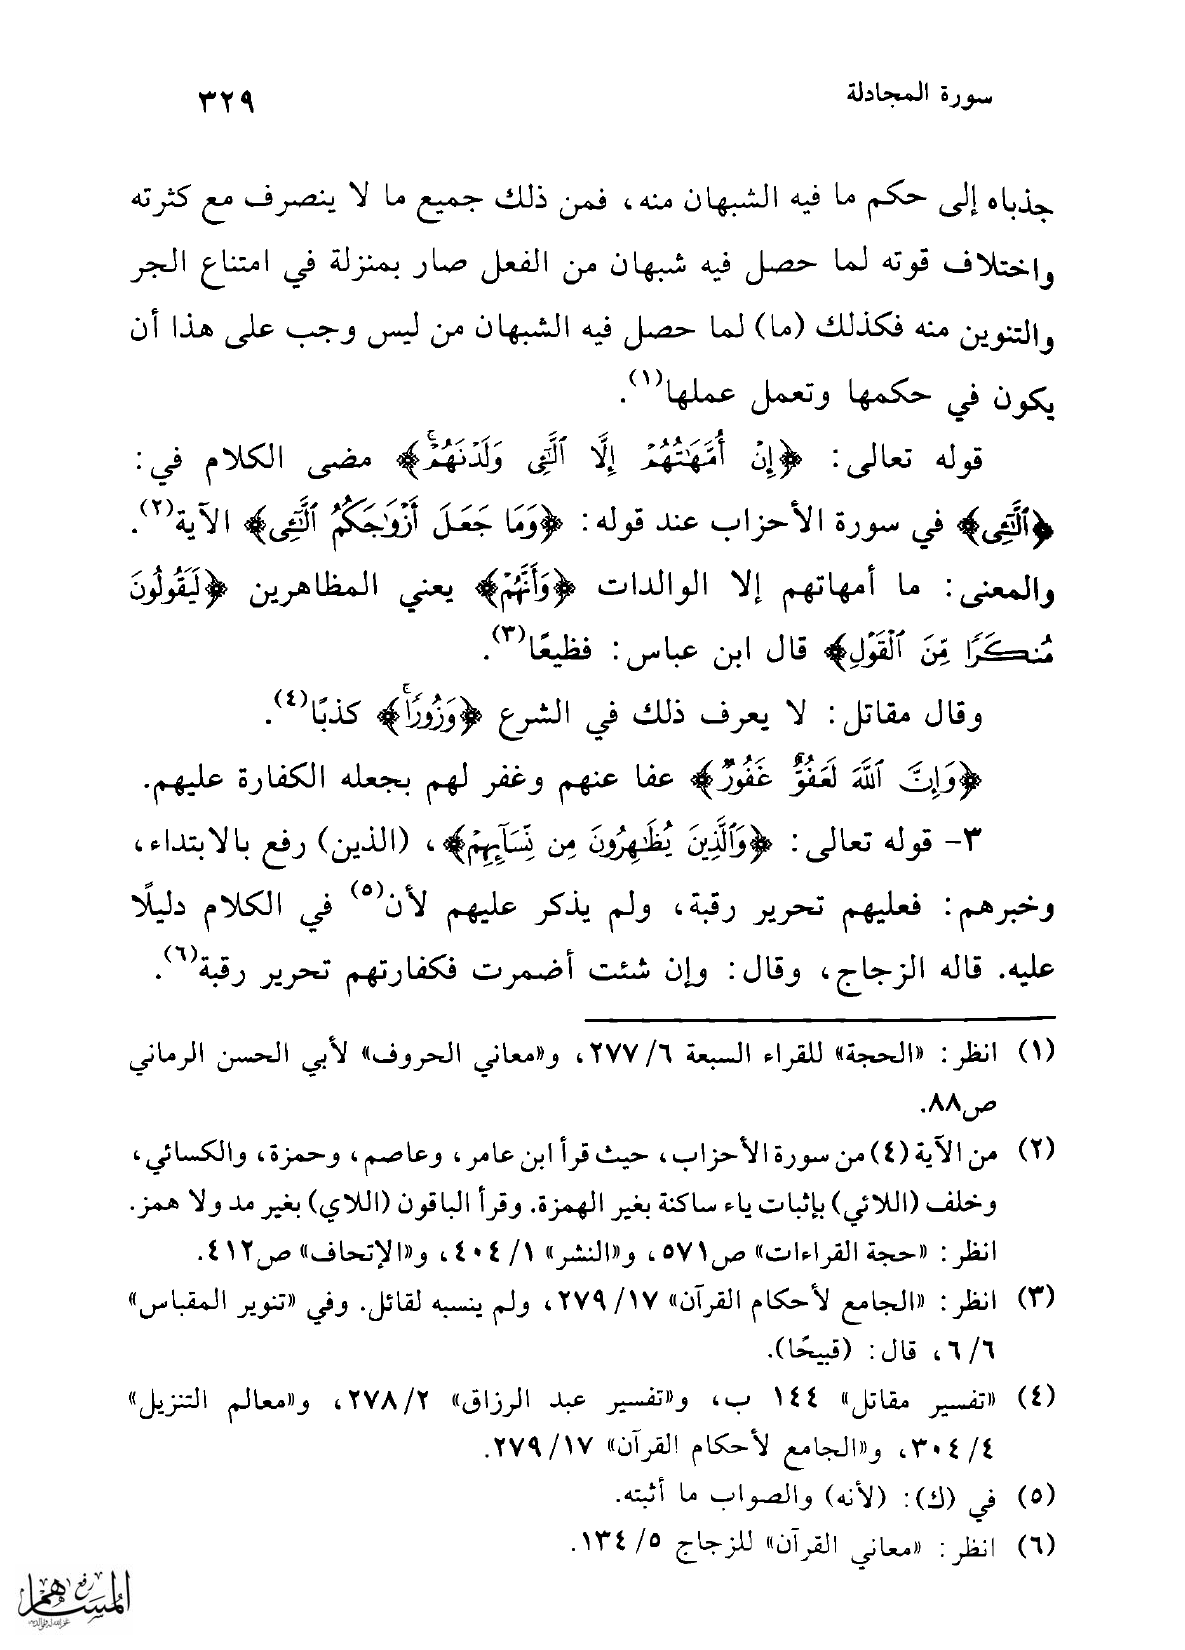 سورة المجادلة ٣٢٩
جذباه إلى حكم ما فيه الشبهان منه، فمن ذلك جميع ما لا ينصرف مع كثرته
واختلاف قوته لما حصل فيه شبهان من الفعل صار بمنزلة في امتناع الجر
والتنوين منه فكذلك (ما) لما حصل فيه الشبهان من ليس وجب على هذا أن
يكون في حكمها وتعمل عملها(١).
قوله تعالى: ﴿إِنْ أُمَّهَٰتُهُمْ إِلَّا ٱلَّٰٓـِٔى وَلَدْنَهُمْ ۚ﴾ مضى الكلام في:
﴿ٱلَّٰٓـِٔى﴾ في سورة الأحزاب عند قوله: ﴿وَمَا جَعَلَ أَزْوَٰجَكُمُ ٱلَّٰٓـِٔى﴾ الآية(٢).
والمعنى: ما أمهاتهم إلا الوالدات ﴿وَأَنَّهُمْ﴾ يعني المظاهرين ﴿لَيَقُولُونَ
مُنكَرًا مِّنَ ٱلْقَوْلِ﴾ قال ابن عباس: فظيعًا(٣).
وقال مقاتل: لا يعرف ذلك في الشرع ﴿وَزُورًا ۚ﴾ كذبًا(٤).
﴿وَإِنَّ ٱللَّهَ لَعَفُوٌّ غَفُورٌ﴾ عفا عنهم وغفر لهم بجعله الكفارة عليهم.
٣- قوله تعالى: ﴿وَٱلَّذِينَ يُظَٰهِرُونَ مِن نِّسَآئِهِمْ﴾، (الذين) رفع بالابتداء،
وخبرهم: فعليهم تحرير رقبة، ولم يذكر عليهم لأن(٥) في الكلام دليلًا
عليه. قاله الزجاج، وقال: وإن شئت أضمرت فكفارتهم تحرير رقبة(٦).
(١) انظر: «الحجة» للقراء السبعة ٦/ ٢٧٧، و«معاني الحروف» لأبي الحسن الرماني
ص٨٨.
(٢) من الآية (٤) من سورة الأحزاب، حيث قرأ ابن عامر، وعاصم، وحمزة، والكسائي،
وخلف (اللائي) بإثبات ياء ساكنة بغير الهمزة. وقرأ الباقون (اللاي) بغير مد ولا همز.
انظر: «حجة القراءات» ص٥٧١، و«النشر» ١/ ٤٠٤، و«الإتحاف» ص٤١٢.
(٣) انظر: «الجامع لأحكام القرآن» ١٧/ ٢٧٩، ولم ينسبه لقائل. وفي «تنوير المقباس»
٦/ ٦، قال: (قبيحًا).
(٤) «تفسير مقاتل» ١٤٤ ب، و«تفسير عبد الرزاق» ٢/ ٢٧٨، و«معالم التنزيل»
٤/ ٣٠٤، و«الجامع لأحكام القرآن» ١٧/ ٢٧٩.
(٥) في (ك): (لأنه) والصواب ما أثبته.
(٦) انظر: «معاني القرآن» للزجاج ٥/ ١٣٤.